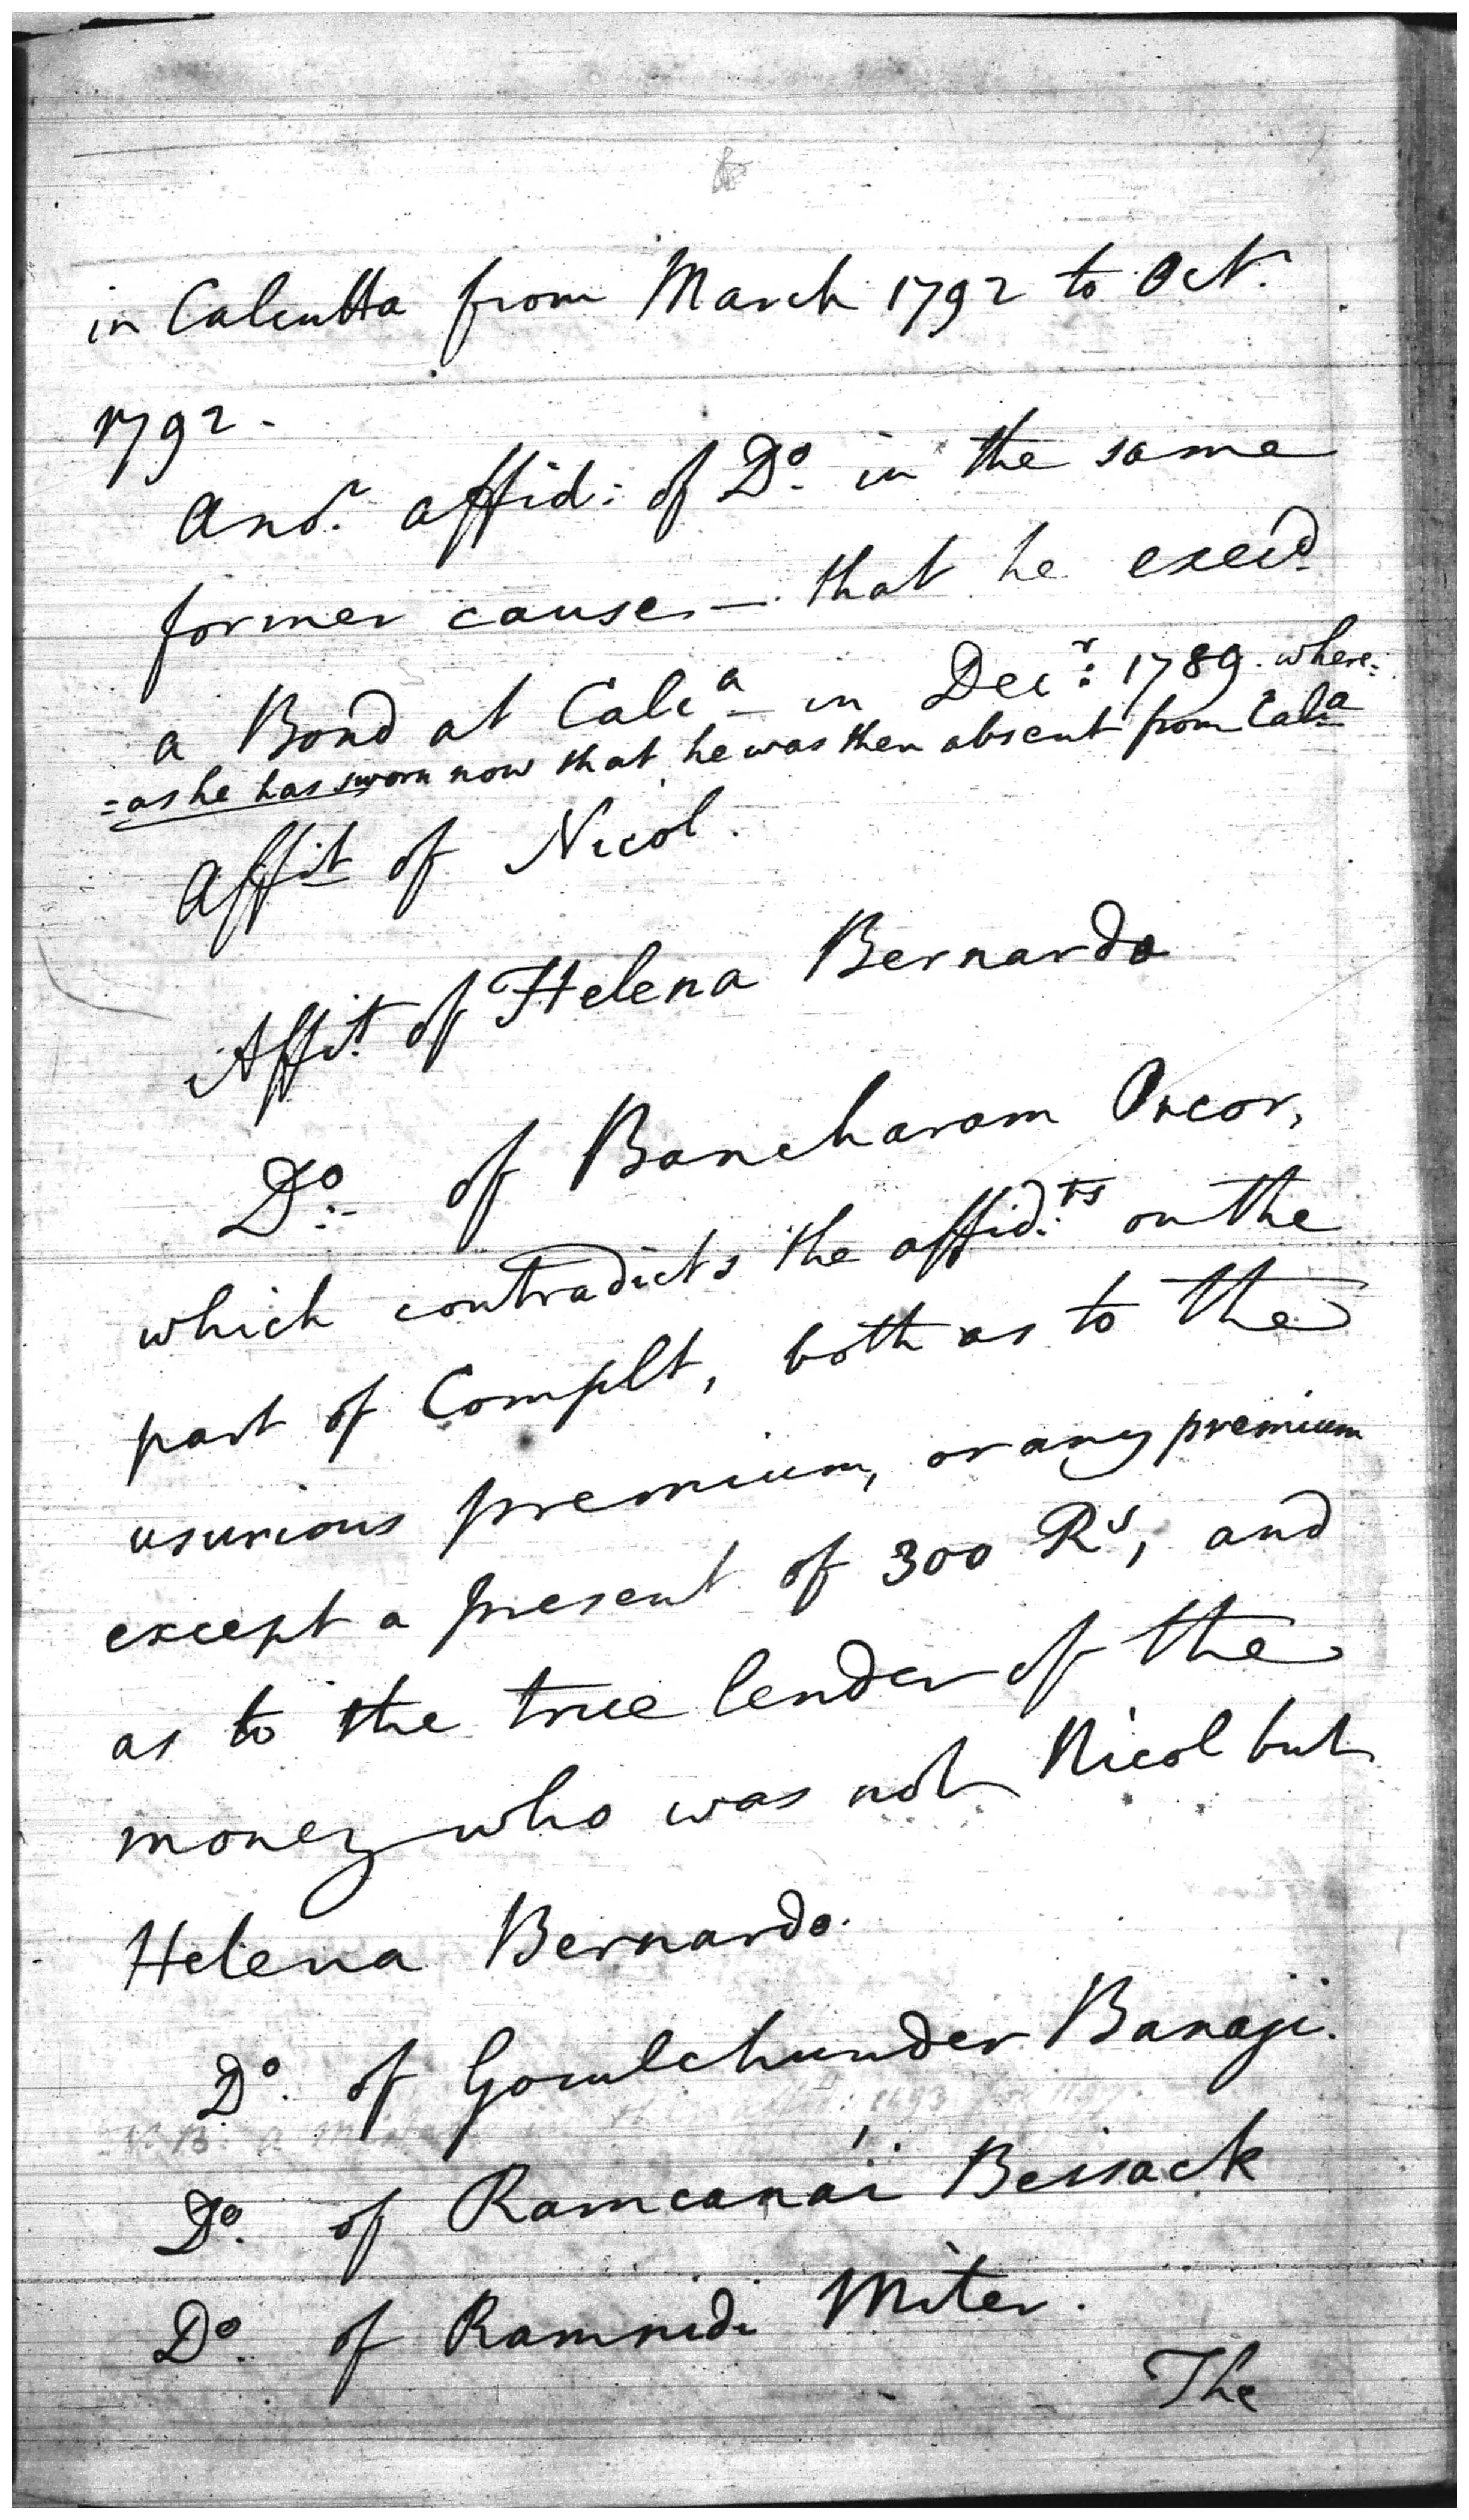 in Calcutta from March 1792 to Oct.
1792.
Ano.r affid: of Do. in the same
former cause — that he exec.d
a Bond at Calc.a in Dec.r: 1789. where=
=as he has sworn now that he was then absent from Calc.a
Aff.it of Nicol.
Affi.t of Helena Bernardo
Do. of Bancharam
which contradicts the affid.ts on the
part of Complt, both as to the
usurious premium, or any premium
except a present of 300 Rs, and
as to the true lender of the
money who was not Nicol but
Helena Bernardo.
Do. of Goculchunder Banaji.
Do. of Ramcanái Beisack
Do. of Ramnidi Miter.
The